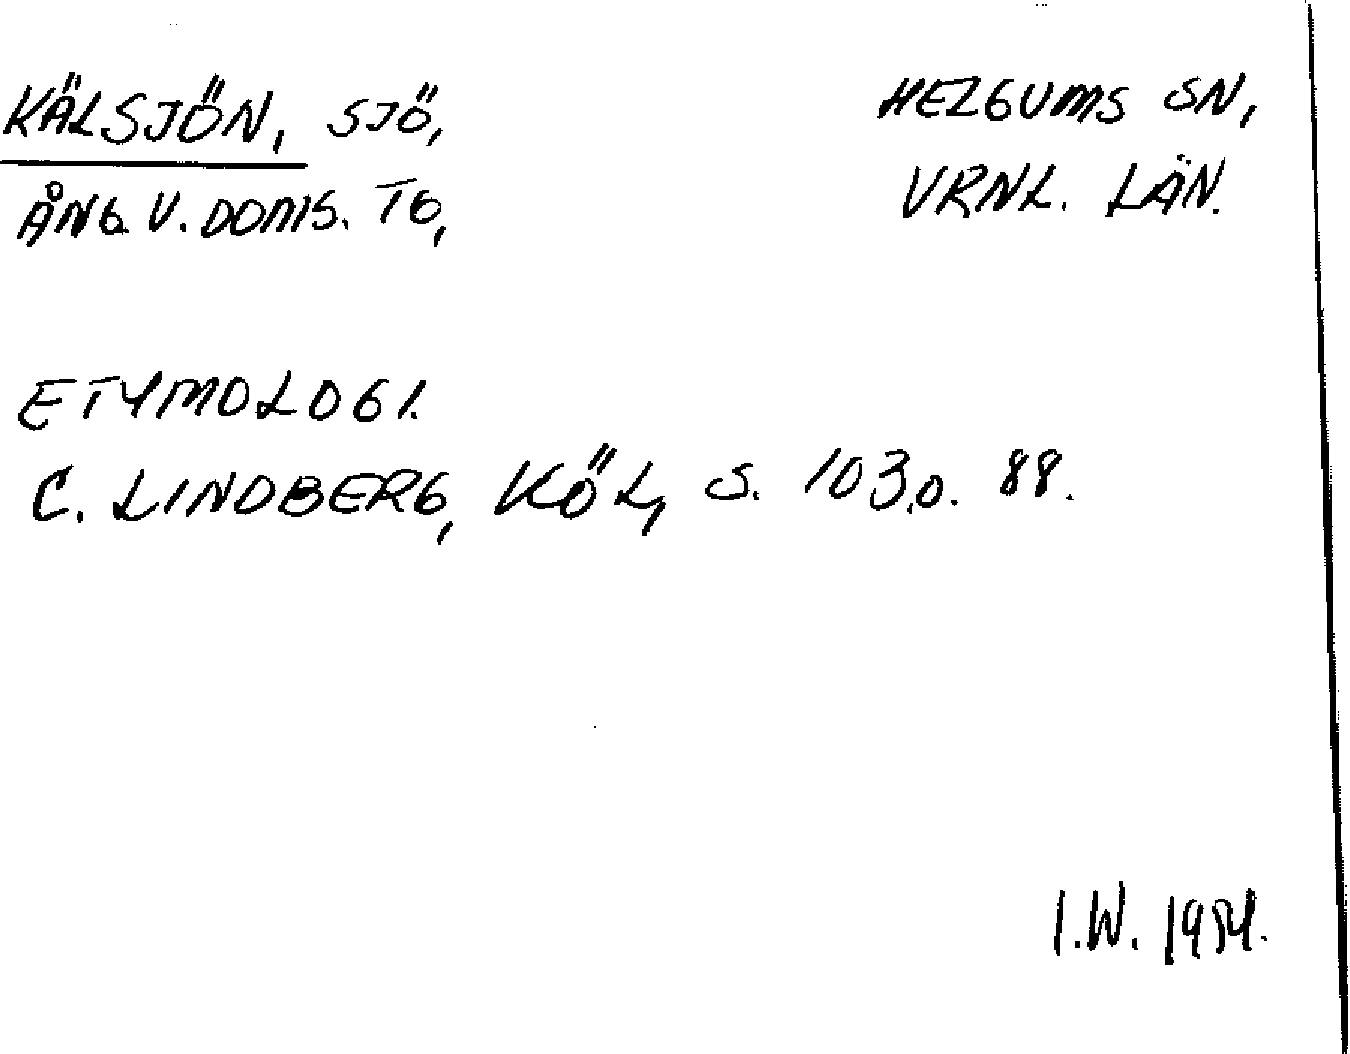 KÄLSJÖN, SJÖ,
HELGUMS SN,
ÅNG. V. DOMS. TG,
VRNL. LÄN.
ETYMOLOGI.
C. LINDBERG, KÖL, S. 103, O. 88.
I.W.